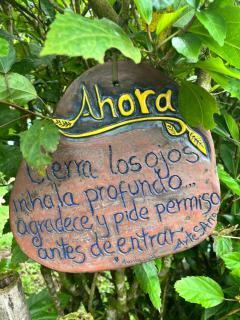 Ahora
Cierra los ojos
inhala profundo...
agradece y pide permiso
antes de entrar.
ArtesAro